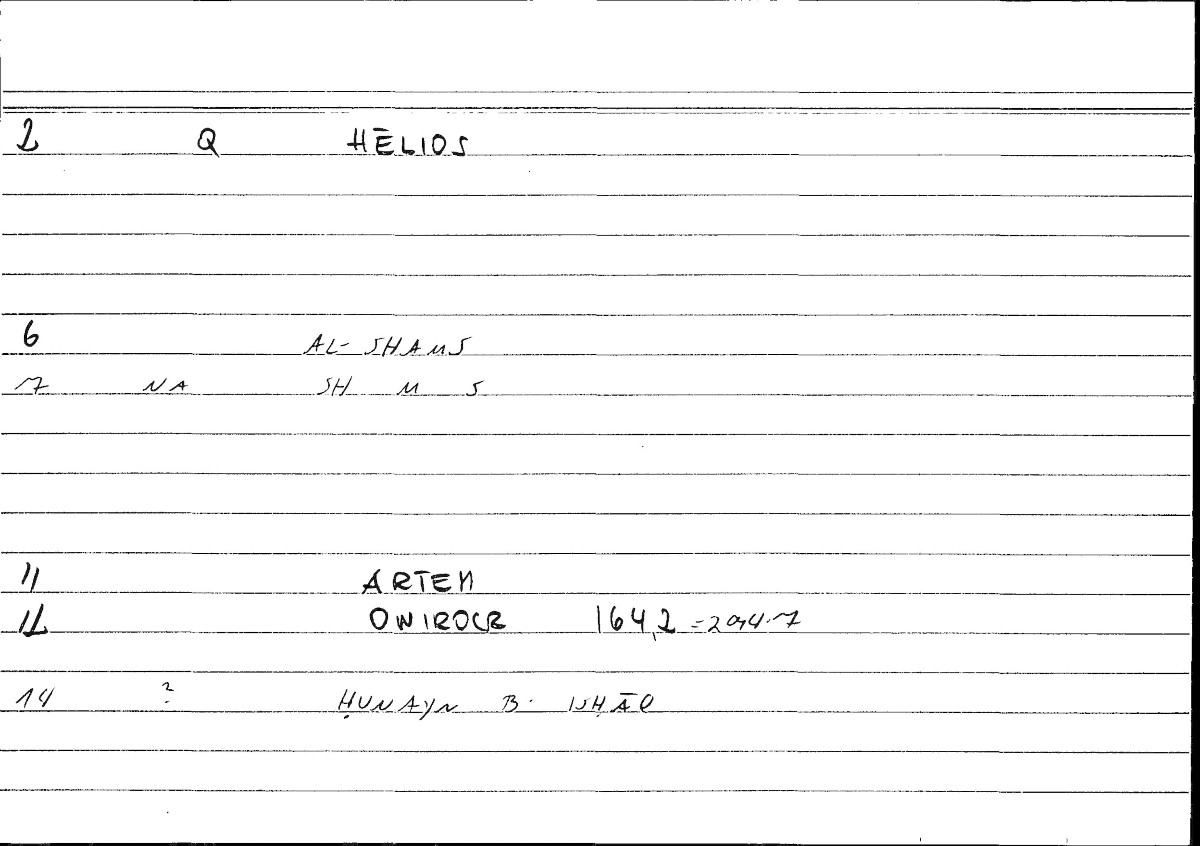 2 Q HĒLIOS
6 AL-SHAMS
7 NA SH M S
11 ARTEM
12 ONIROCR 164,2 = 294.7
14 ? ḤUNAYN B. ISḤĀQ